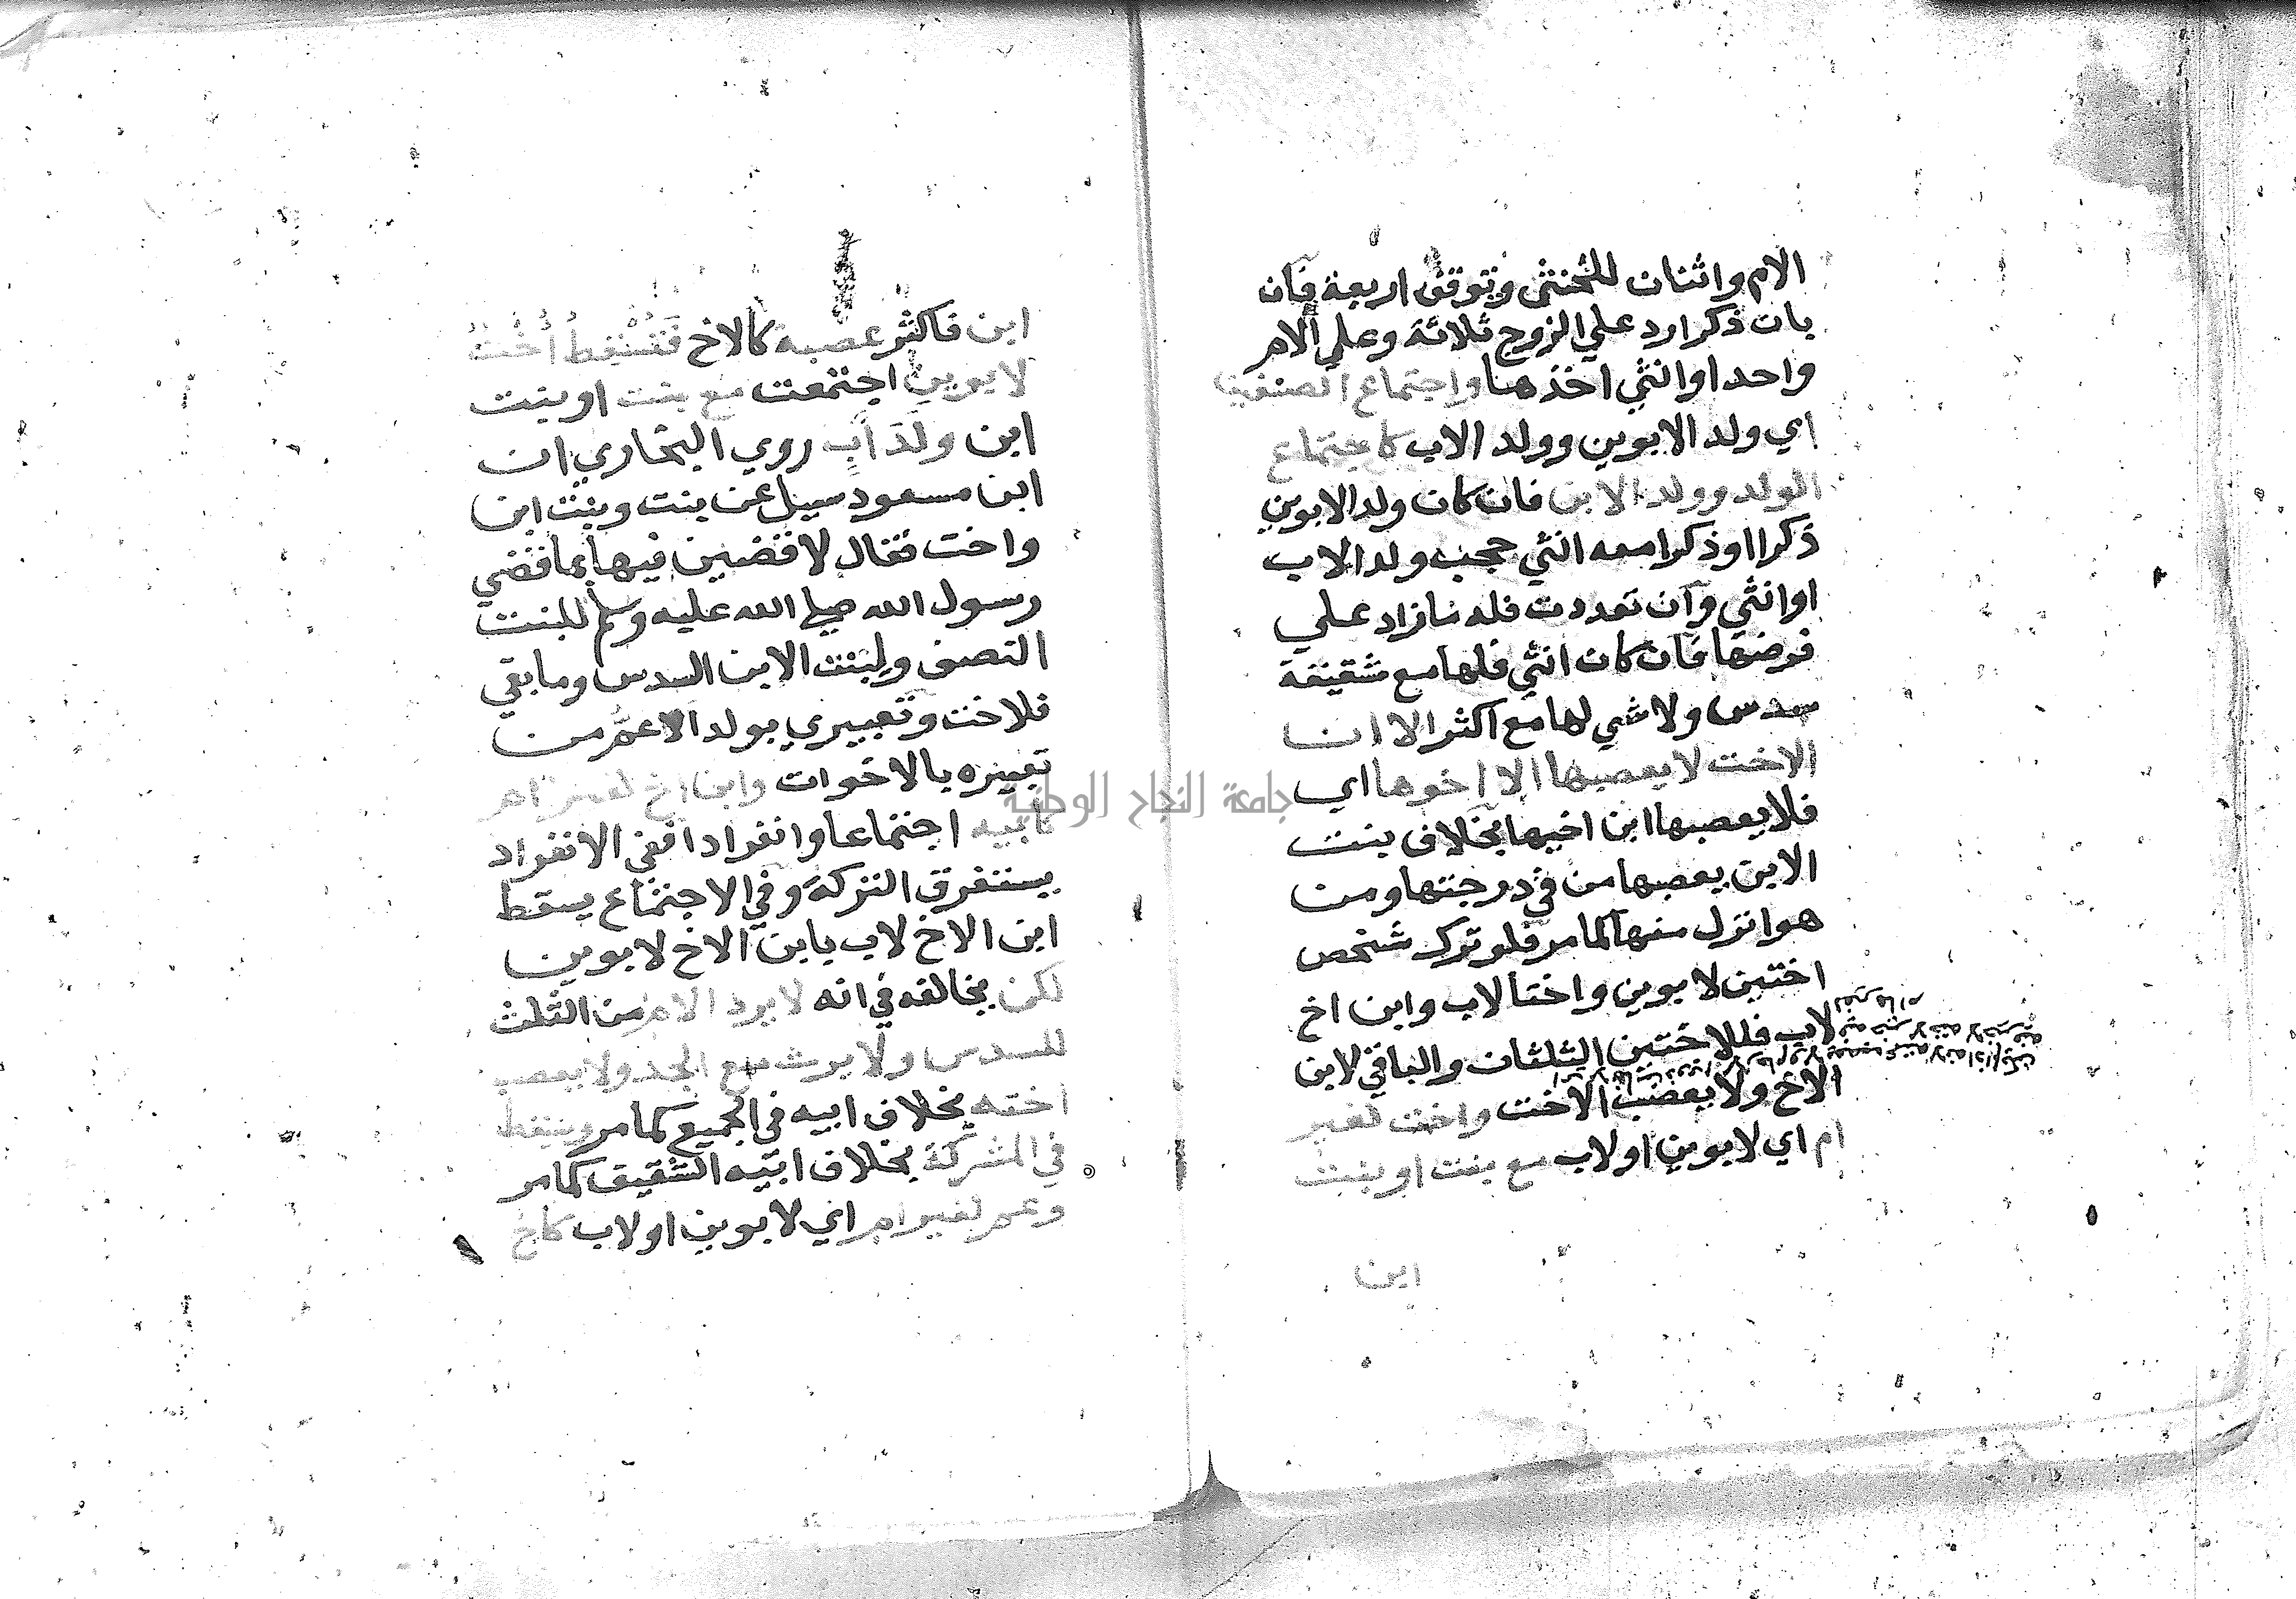 الام واثنان للخنثي وتوقف اربعة فان
بان ذكرا رد علي الزوج ثلاثة وعلي الام
واحد او انثي اخذها واجتماع الصنفين
اي ولد الابوين وولد الاب كاجتماع
الولد وولد الابن فان كان ولد الابوين
ذكرا او ذكرا معه انثي حجب ولد الاب
او انثي وان تعددت فله ما زاد علي
فرضها فان كان انثي فلها مع شقيقة
سدس ولا شي لها مع اكثر الا ان
الاخت لا يعصبها الا اخوها اي
فلا يعصبها ابن اخيها بخلاف بنت
الابن يعصبها من في درجتها ومن
هو انزل منها كما مر فلو ترك شخص
اختين لابوين واختا لاب وابن اخ
لاب فللاختين الثلثان والباقي لابن
الاخ ولا يعصب الاخت واخت لغير
ام اي لابوين او لاب مع بنت او بنت
ابن
ابن فاكثر عصبة كالاخ فتسقط اخت
لابوين اجتمعت مع بنت او بنت
ابن ولد اب روي البخاري ان
ابن مسعود سيل عن بنت وبنت ابن
واخت فقال لاقضين فيها بما قضي
رسول الله صلي الله عليه وسلم للبنت
النصف ولبنت الابن السدس وما بقي
فلاخت وتعبيري بولد الاب اعم من
تعبيره بالاخوات وابن اخ لغير ام
كابيه اجتماعا وانفرادا ففي الانفراد
يستغرق التركة وفي الاجتماع يسقط
ابن الاخ لاب بابن الاخ لابوين
لكن يخالفه في انه لا يرد الام من الثلث
للسدس ولا يرث مع الجد ولا يعصب
اخته بخلاف ابيه في الجميع كما مر ويسقط
في المشركة بخلاف ابيه الشقيق كما مر
وعم لغير ام اي لابوين او لاب كاخ
جامعة النجاح الوطنية